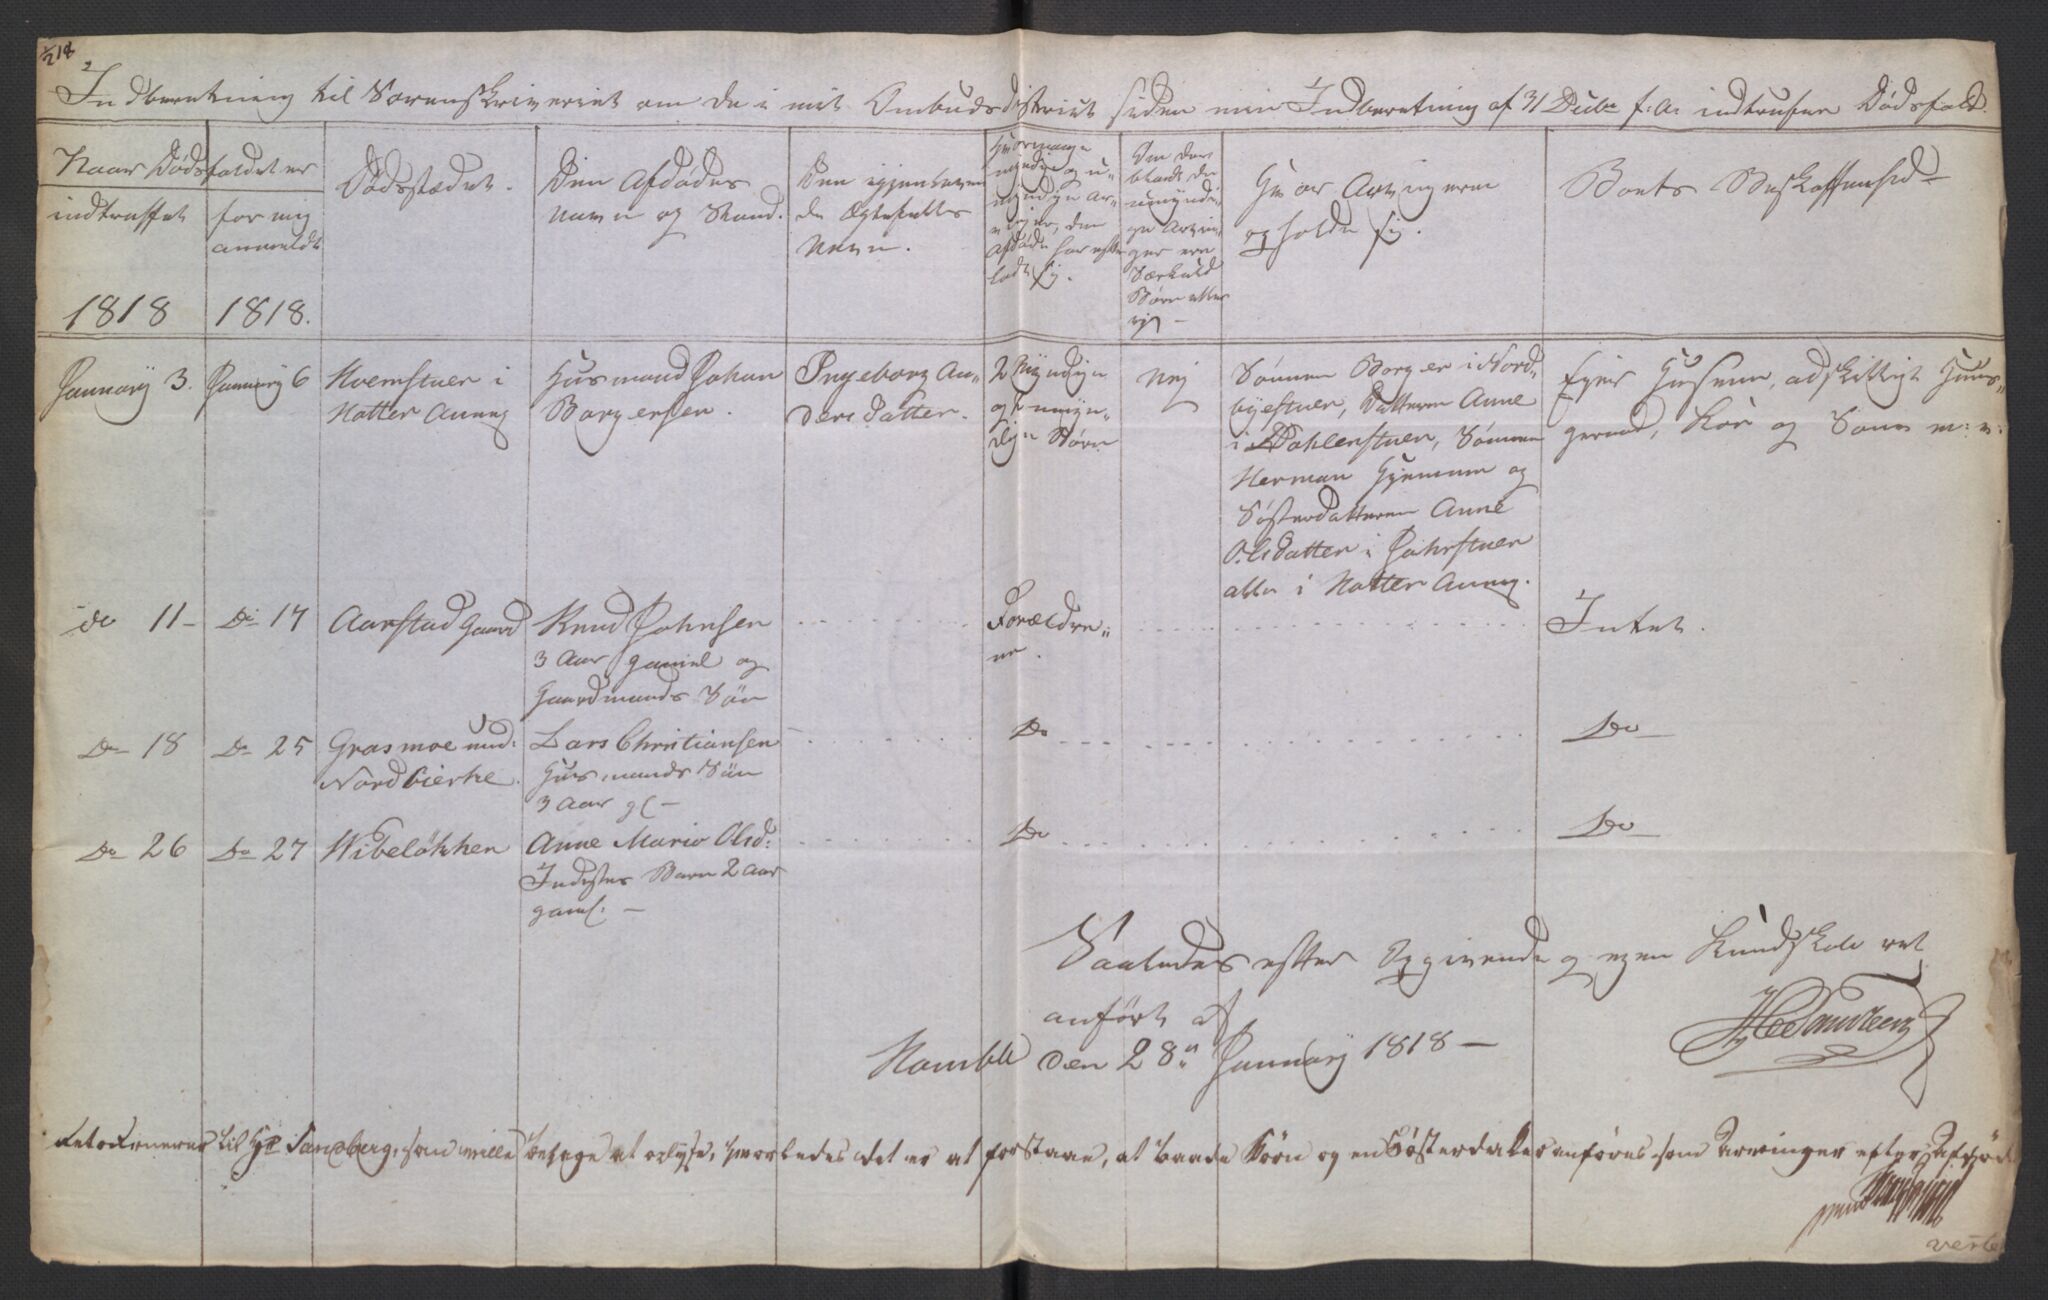 ½18
Indberetning til Sorenskriveriet om de i mit Ombudsdistrict siden min Indberetning af 31 Decbr f: A: indtrufne Dødsfald.
Naar Dødsfaldet er
indtruffet
for mig
anmeldt
1818
1818.
Dødsstædet.
Den Afdødes
Navn og Stand.
Den igjenleven
de Ægtefælles
Navn.
Hvormange
myndige og u-
myndige Ar-
vinger, den
Afdøde har efter
ladt sig.
Om der
blandt de
umyndi-
ge Arvin-
ger ere
Særkuld
Børn eller
ej
Hvor Arvingerne
opholde sig.
Boets Beskaffenhed
January 3.
January 6
Hvemstuen i
Holter Anneg
Husmand Johan
Borgersen.
Ingeborg An„
ders Datter.
2 Myndige
og umyn„
dige Børn
Nej
Sønnen Borger i Nord„
byestuen, Datteren Anne
i Dahlenstuen, Sønnen
Herman Hjemme og
Søsterdatteren Anne
Olsdatter i Jahrstuen
alle i Holter Anneg.
Ejer Husene, adskilligt Huus„
geraad, Koe og Soun m: v:
do 11 –
Do 17
Aarstad Gaard
Knud Johnsen
3 Aar gamel og
Gaardmands Søn
Forældre„
ne.
Intet.
Do 18
Do 25
Grasmoe und:
Nordbierke.
Lars Christiansen
Husmands Søn
3 Aar gl –
Do
Do
Do 26
Do 27
Wibeløkken
Anne Maria Olsd:
Indistes Barn 2 Aar
gaml. –
Do
Do
Saaledes efter Opgivende og egen Kundskab ret
anført af
Homble den 28n January 1818 –
HOSandberg
Retourneres til Hr Sandberg, som ville behage at oplyse, hvorledes det er at forstaae, at baade Børn og en Søsterdatter anføres som Arvinger efter Afdøde
verte